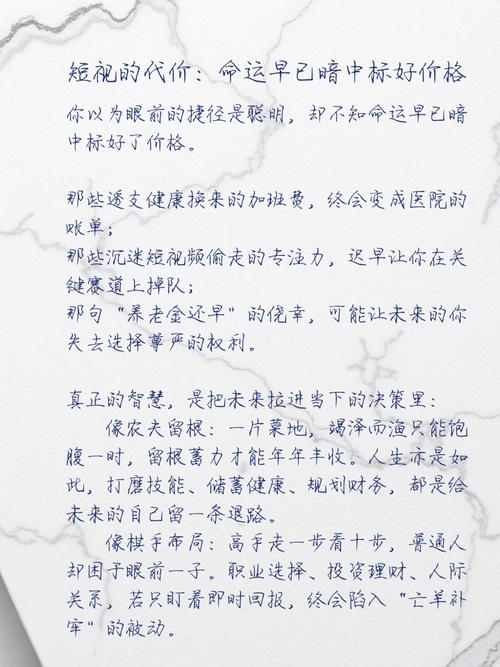 短视的代价：命运早已暗中标好价格
你以为眼前的捷径是聪明，却不知命运早已暗
中标好了价格。
那些透支健康换来的加班费，终会变成医院的
账单；
那些沉迷短视频偷走的专注力，迟早让你在关
键赛道上掉队；
那句“养老金还早”的侥幸，可能让未来的你
失去选择尊严的权利。
真正的智慧，是把未来拉进当下的决策里：
像农夫留根：一片菜地，竭泽而渔只能饱
腹一时，留根蓄力才能年年丰收。人生亦是如
此，打磨技能、储蓄健康、规划财务，都是给
未来的自己留一条退路。
像棋手布局：高手走一步看十步，普通人
却困于眼前一子。职业选择、投资理财、人际
关系，若只盯着即时回报，终会陷入“亡羊补
牢”的被动。